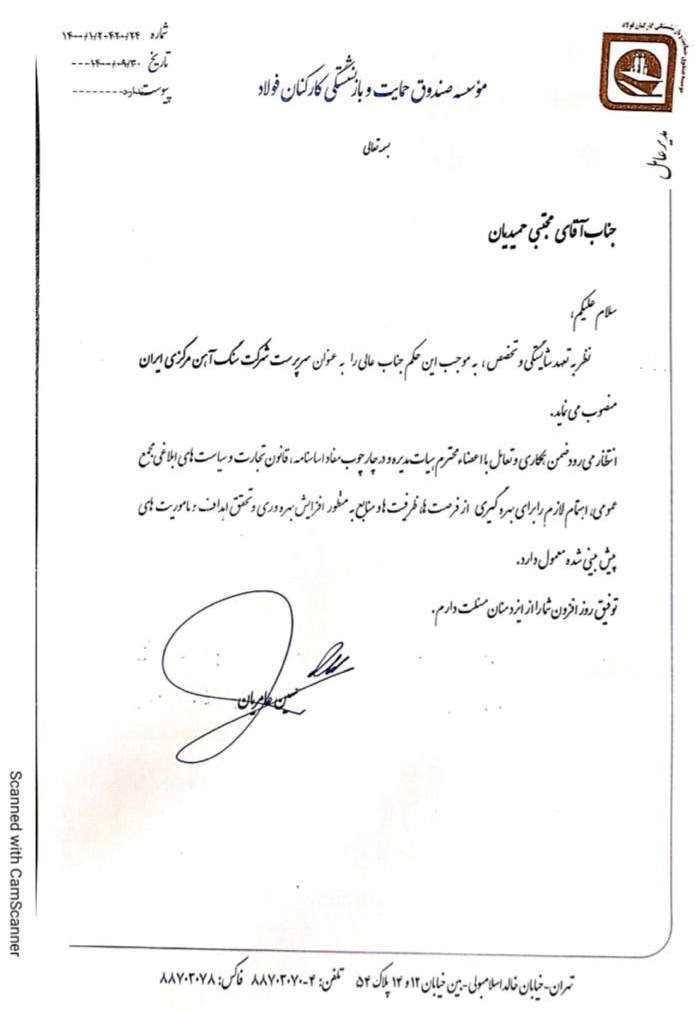 شماره ۱۴۰۰/۱/۲۰۴۲۰/۲۴
تاریخ ۱۴۰۰/۰۹/۳۰
پیوست ندارد
مؤسسه صندوق حمایت و بازنشستگی کارکنان فولاد
مدیر عامل
بسمه تعالی
جناب آقای مجتبی حمیدیان
سلام علیکم؛
نظر به تعهد شایستگی و تخصص، به موجب این حکم جناب عالی را به عنوان سرپرست شرکت سنگ آهن مرکزی ایران
منصوب می نماید.
انتظار می رود ضمن همکاری و تعامل با اعضاء محترم هیات مدیره و در چارچوب مفاد اساسنامه، قانون تجارت و سیاست های ابلاغی مجمع
عمومی، اهتمام لازم را برای بهره گیری از فرصت ها، ظرفیت ها و منابع به منظور افزایش بهره وری و تحقق اهداف و ماموریت های
پیش بینی شده معمول دارد.
توفیق روز افزون شما را از ایزد منان مسئلت دارم.
حسین عامریان
تهران-خیابان خالد اسلامبولی-بین خیابان ۱۲ و ۱۴ پلاک ۵۴ تلفن: ۴-۸۸۷۰۳۰۷۰ فاکس: ۸۸۷۰۳۰۷۸
Scanned with CamScanner